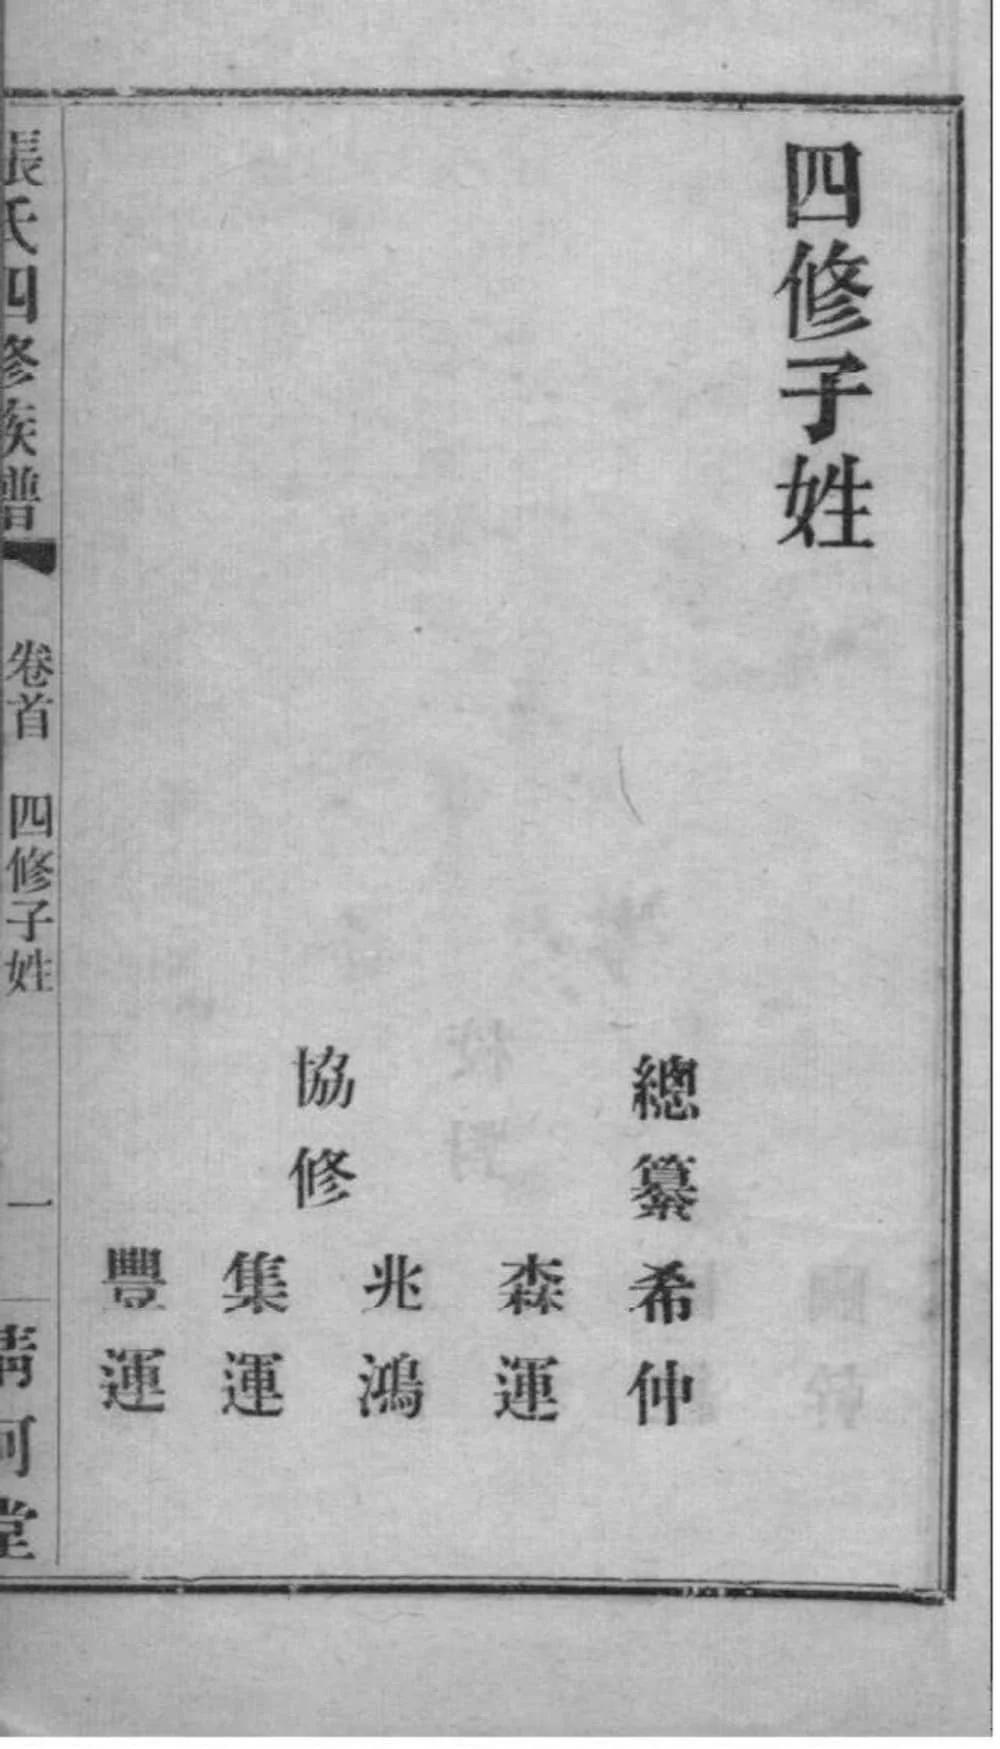 四修子姓
總纂希仲
森運
協修
兆鴻
集運
豐運
張氏四修族譜 卷首 四修子姓 一 清河堂